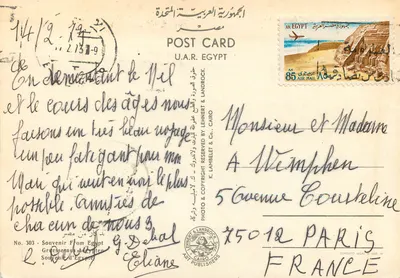 الجمهورية العربية المتحدة
مصر
POST CARD
U.A.R. EGYPT
14/2.79
EGYPT
85
En remontant le Nil
et le cours des âges nous
faisons un très beau voyage
un peu fatigant pour mon
Mari qui veut en voir le plus
possible. Amitiés de
chacun de nous 2
G. Deval
Eliane
No. 303 - Souvenir From Egypt
PHOTO & COPYRIGHT RESERVED BY LEHNERT & LANDROCK
K. LAMBELET & Co., CAIRO
Monsieur et Madame
A Wemphen
5 avenue Cousteline
75012 PARIS
FRANCE